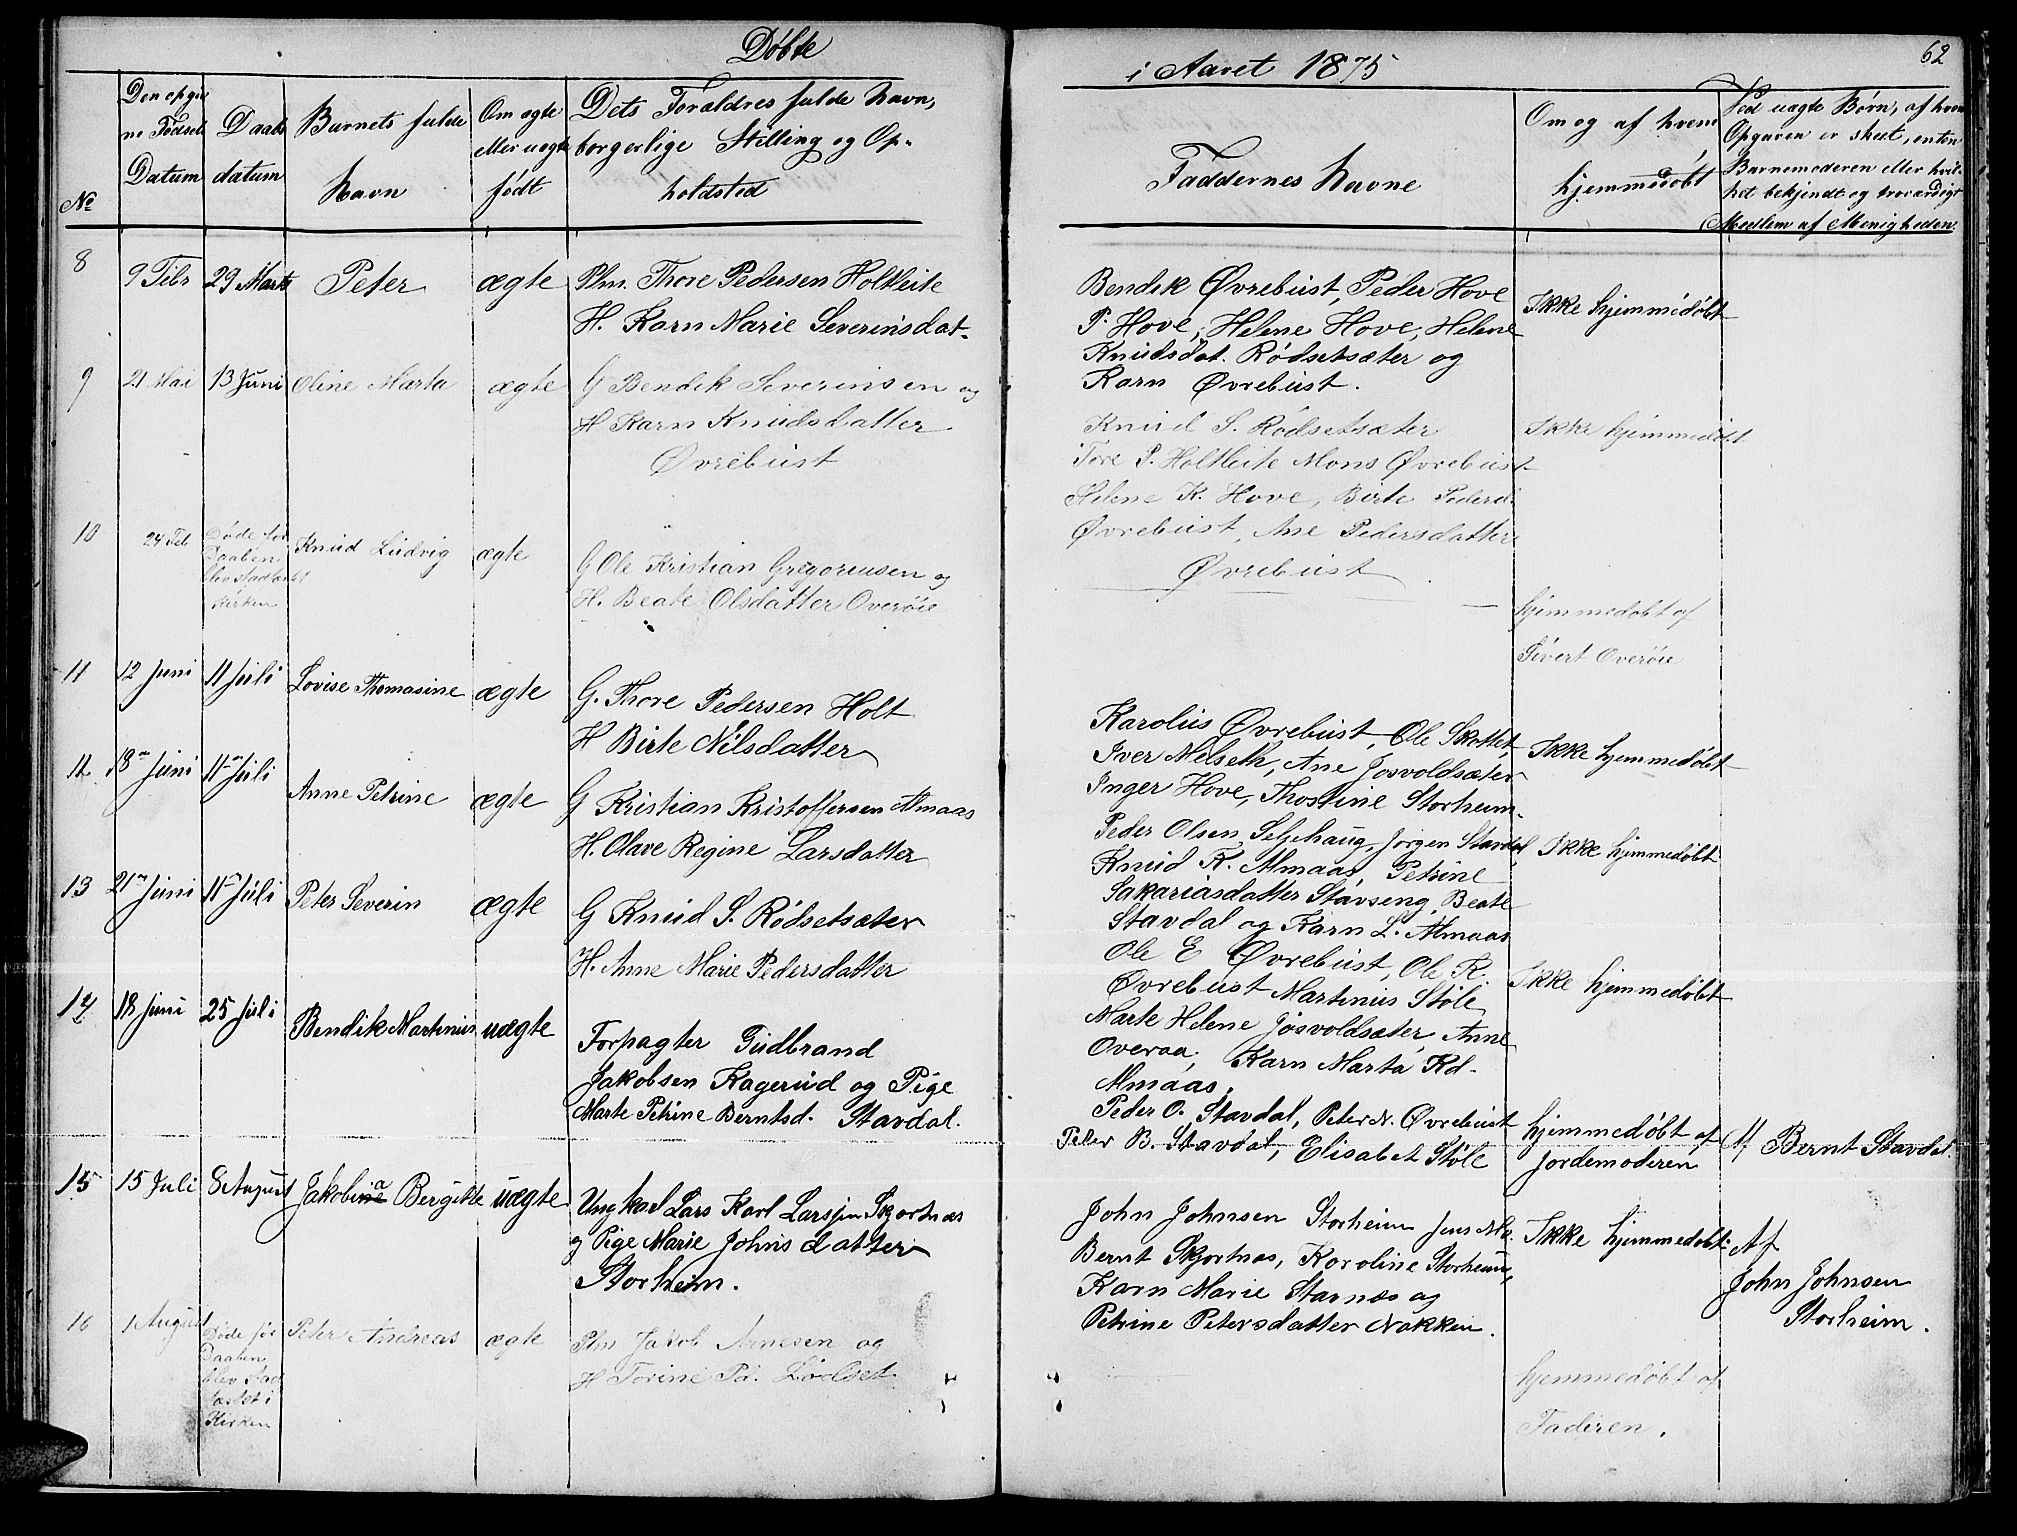 Døbte
i Aaret 1875
62
No
Den opgiv
ne Fødsels
Datum
Daabs
datum
Barnets fulde
Navn
Om ægte
eller uægte
født
Dets Forældres fulde Navn,
borgerlige Stilling og Op-
holdsted
Faddernes Navne
Om og af hvem
hjemmedøbt
Ved uægte Børn, af hvem
Opgaven er skeet, enten
Barnemoderen eller hvil-
ket bekjendt og troværdigt
Medlem af Menigheden.
8
9 Febr
29 Marts
Peter
ægte
Plm. Thore Pedersen Holtleite
H. Karn Marie Severinsdat.
Bendik Øvrebust, Peder Hove
P. Hove, Helene Hove, Helene
Knudsdat. Rødsetsæter og
Karn Øvrebust.
Ikke hjemmedøbt
9
21 Mai
13 Juni
Oline Marta
ægte
G Bendik Severinsen og
H Karn Knudsdatter
Øvrebust
Knud S. Rødsetsæter
Tore P. Holtleite Mons Øvrebust
Helene K. Hove, Birte Pedersd.
Øvrebust, Ane Pedersdatter
Øvrebust
Ikke hjemmedøbt
10
24 Feb
Døde før
Daaben
blev stadfæstet i
Kirken
Knud Ludvig
ægte
G Ole Kristian Gregoriusen og
H. Beate Olsdatter Overøie
hjemmedøbt af
Sivert Overøie
11
12 Juni
11 Juli
Lovise Thomasine
ægte
G. Thore Pedersen Holt
H Birte Nilsdatter
Karolius Øvrebust, Ole Skottet,
Iver Melseth, Ane Josvoldsæter
Inger Hove, Thostine Storheim.
Ikke hjemmedøbt
12
18 Juni
11 Juli
Anne Petrine
ægte
G Kristian Kristoffersen Almaas
H. Olave Regine Larsdatter
Peder Olsen Seljehaug, Jørgen Stavdal,
Knud K. Almaas, Petrine
Sakariasdatter Stavseng, Beate
Stavdal og Karn L. Almaas
Ikke hjemmedøbt
13
21 Juni
11 Juli
Peter Severin
ægte
G Knud S. Rødsetsæter
H. Anne Marie Pedersdatter
Ole E Øvrebust, Ole K.
Øvrebust Martinus Støle
Marte Helene Josvoldsæter, Anne
Overaa, Karn Marta Kd.
Almaas.
Ikke hjemmedøbt
14
18 Juni
25 Juli
Bendik Martinus
uægte
Forpagter Gudbrand
Jakobsen Kagerud og Pige
Marte Petrine Berntsd. Stavdal.
Peder O. Stavdal, Peter N. Øvrebust
Peter B. Stavdal, Elisabet Støle
hjemmedøbt af
Jordemoderen
Af Bernt Stavdal.
15
15 Juli
8 August
Jakobina Bergitte
uægte
Ungkarl Lars Karl Larssen Skjortnæs
og Pige Marie Johnsdatter
Storheim.
John Johnsen Storheim Jens
Bernt Skjortnæs, Karoline Storheim,
Karn Marie Stavnæs og
Petrine Petersdatter Nakken.
Ikke hjemmedøbt
Af
John Johnsen
Storheim.
16
1 August
Døde før
Daaben
blev stad
fæstet i
Kirken
Peter Andreas
ægte
Plm Jakob Arnesen og
H Torine Pd. Lødset
hjemmedøbt af
Faderen.